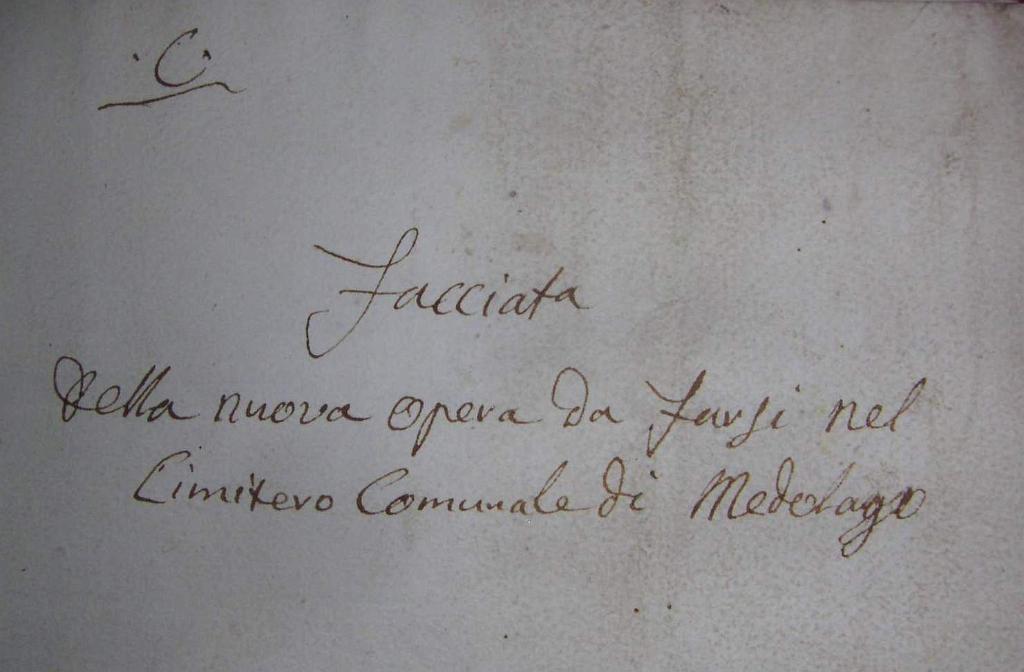 .C.
Facciata
Della nuova opera da Farsi nel
Cimitero Comunale di Medolago